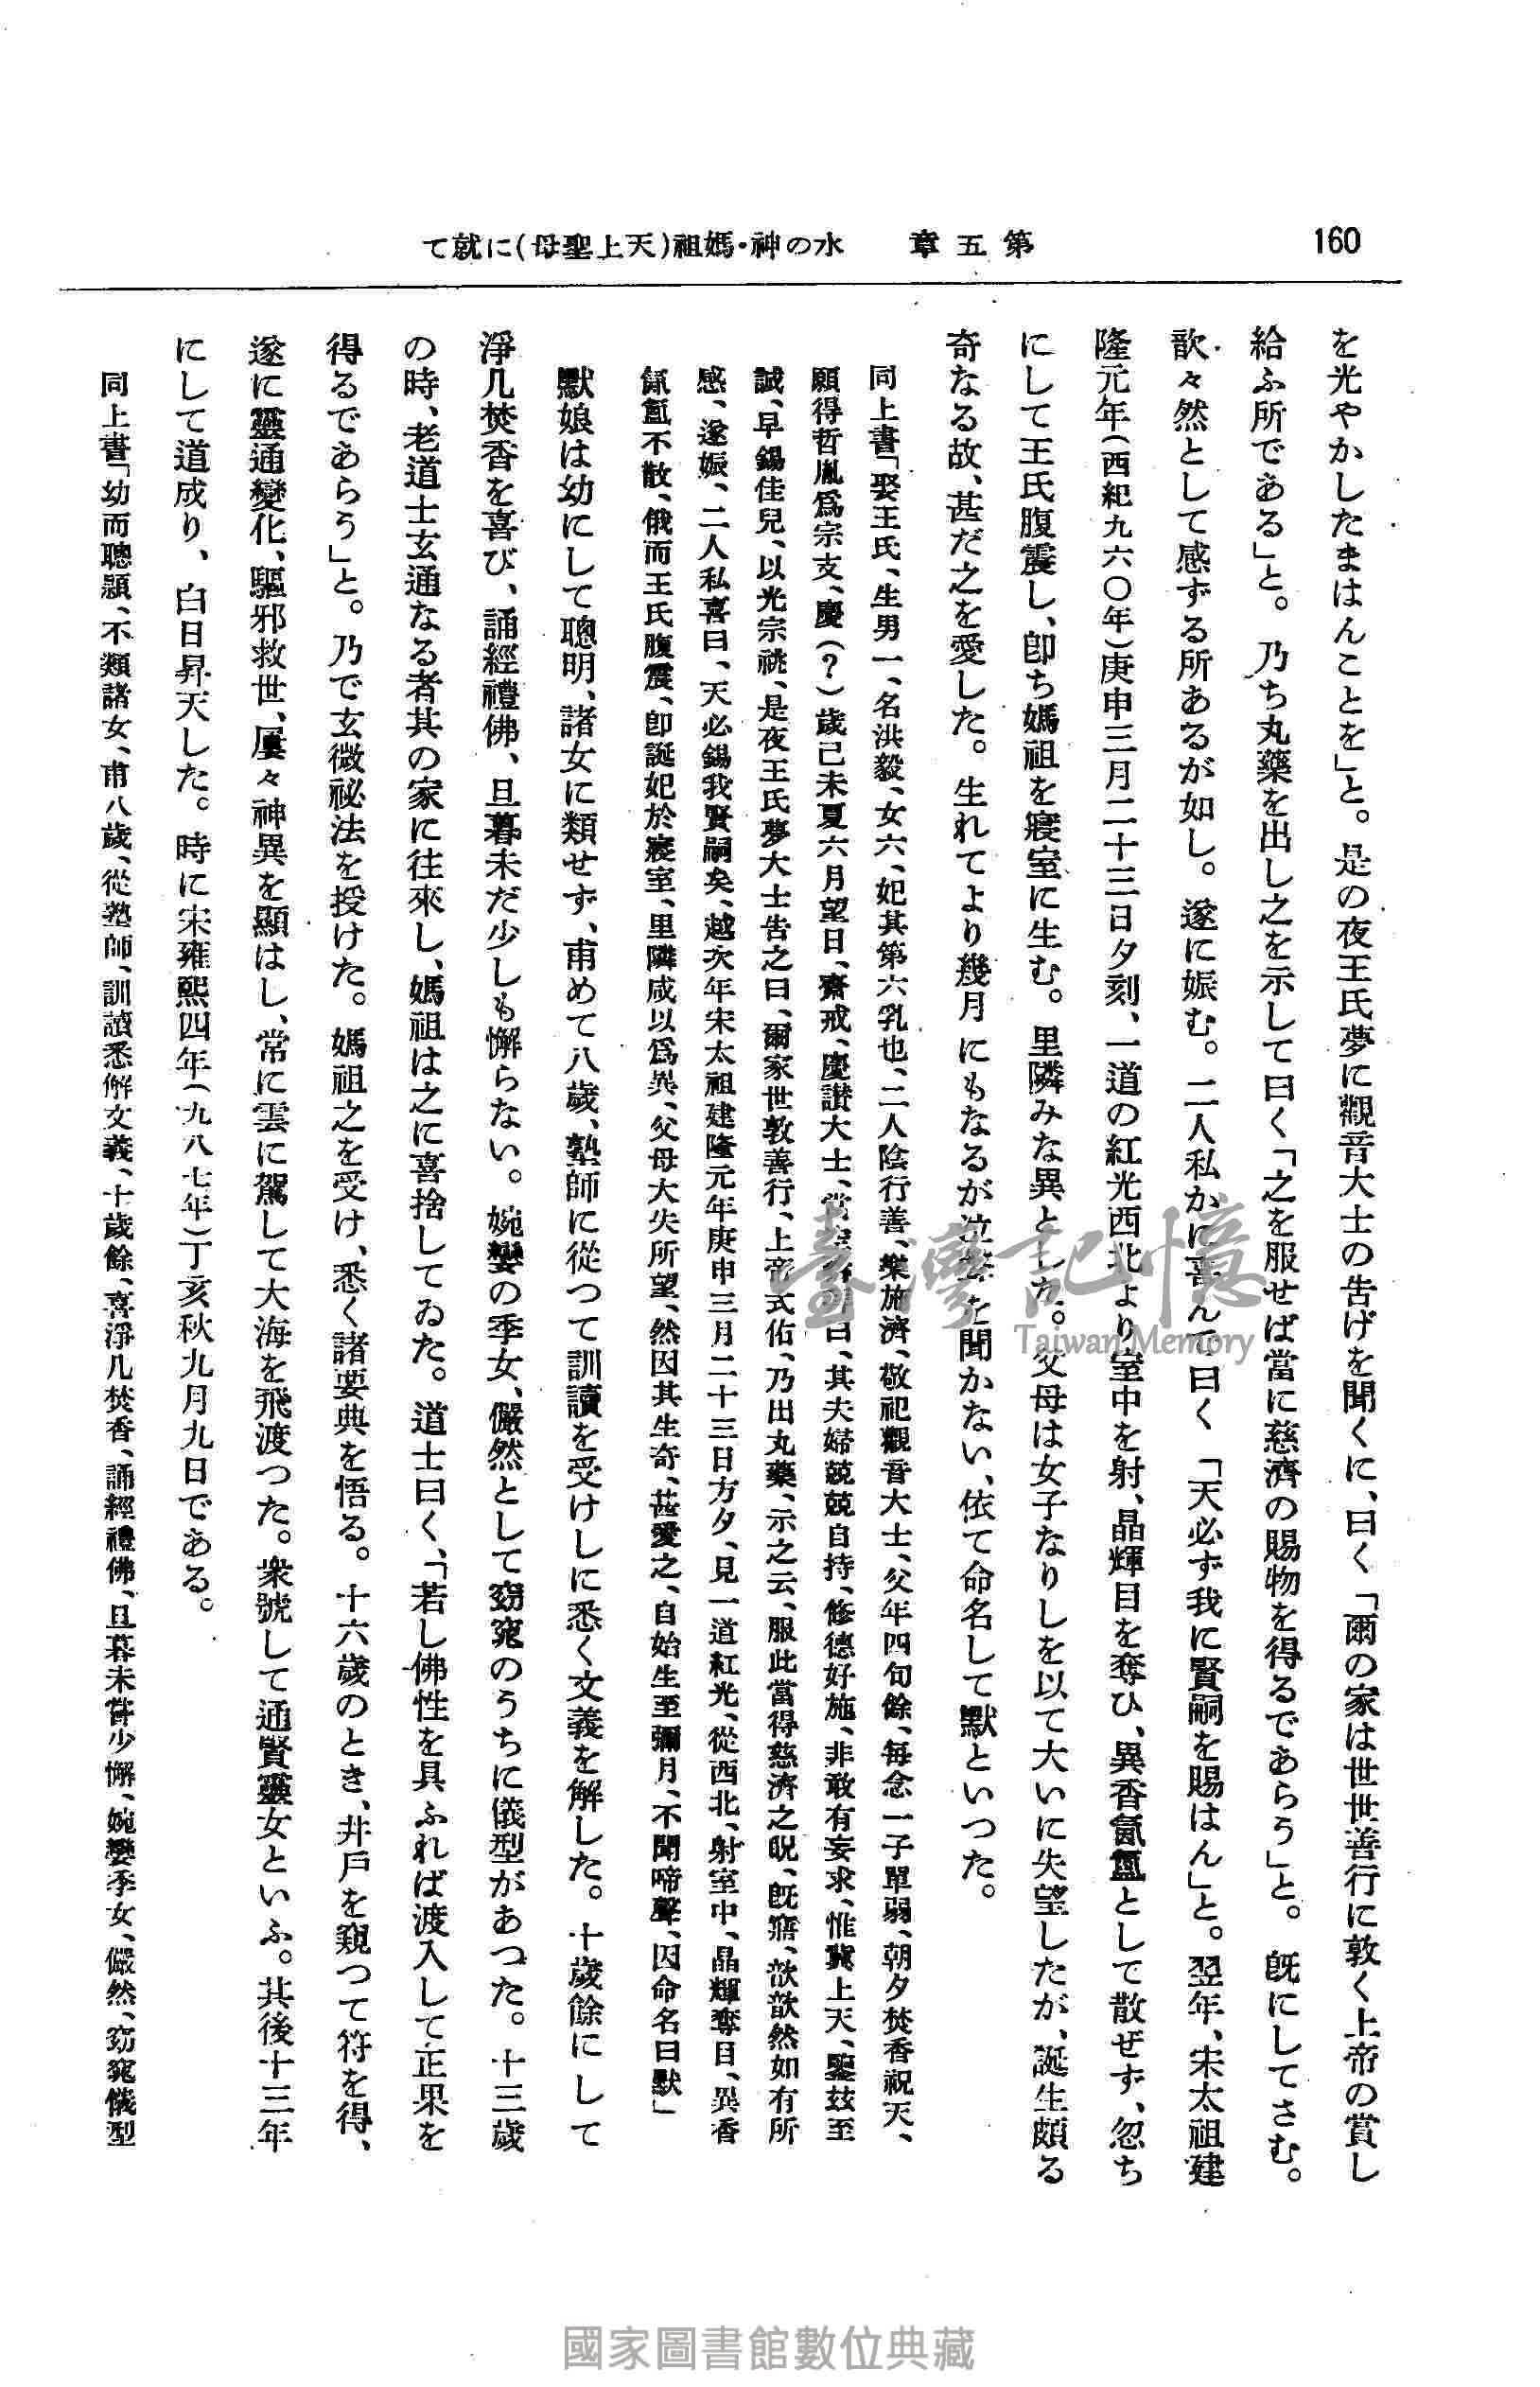 160
第五章　水の神・媽祖(天上聖母)に就て
を光やかしたまはんことを」と。是の夜王氏夢に觀音大士の告げを聞くに、曰く「爾の家は世世善行に敦く上帝の賞し
給ふ所である」と。乃ち丸藥を出し之を示して曰く「之を服せば當に慈濟の賜物を得るであらう」と。既にしてさむ。
歆々然として感ずる所あるが如し。遂に娠む。二人私かに喜んで曰く「天必ず我に賢嗣を賜はん」と。翌年、宋太祖建
隆元年(西紀九六〇年)庚申三月二十三日夕刻、一道の紅光西北より室中を射、晶輝目を奪ひ、異香氤氳として散ぜず、忽ち
にして王氏腹震し、卽ち媽祖を寢室に生む。里隣みな異とした。父母は女子なりしを以て大いに失望したが、誕生頗る
奇なる故、甚だ之を愛した。生れてより幾月にもなるが泣聲を聞かない、依て命名して默といつた。
同上書「娶王氏、生男一、名洪毅、女六、妃其第六乳也、二人陰行善、樂施濟、敬祀觀音大士、父年四旬餘、每念一子單弱、朝夕焚香祝天、
願得哲胤爲宗支、慶(?)歲己未夏六月望日、齋戒、慶讃大士、當空禱拜曰、其夫婦兢兢自持、修德好施、非敢有妄求、惟冀上天、鑒玆至
誠、早錫佳兒、以光宗祧、是夜王氏夢大士告之曰、爾家世敦善行、上帝式佑、乃出丸藥、示之云、服此當得慈濟之貺、旣寤、歆歆然如有所
感、遂娠、二人私喜曰、天必錫我賢嗣矣、越次年宋太祖建隆元年庚申三月二十三日方夕、見一道紅光、從西北、射室中、晶輝奪目、異香
氤氳不散、俄而王氏腹震、卽誕妃於寢室、里隣咸以爲異、父母大失所望、然因其生奇、甚愛之、自始生至彌月、不聞啼聲、因命名曰默」
默娘は幼にして聰明、諸女に類せず、甫めて八歲、塾師に從つて訓讀を受けしに悉く文義を解した。十歲餘にして
淨几焚香を喜び、誦經禮佛、旦暮未だ少しも懈らない。婉孌の季女、儼然として窈窕のうちに儀型があつた。十三歲
の時、老道士玄通なる者其の家に往來し、媽祖は之に喜捨してゐた。道士曰く、「若し佛性を具ふれば渡入して正果を
得るであらう」と。乃で玄微祕法を授けた。媽祖之を受け、悉く諸要典を悟る。十六歲のとき、井戶を窺つて符を得、
遂に靈通變化、驅邪救世、屢々神異を顯はし、常に雲に駕して大海を飛渡つた。衆號して通賢靈女といふ。其後十三年
にして道成り、白日昇天した。時に宋雍熙四年(九八七年)丁亥秋九月九日である。
同上書「幼而聰頴、不類諸女、甫八歲、從塾師、訓讀悉解文義、十歲餘、喜淨几焚香、誦經禮佛、旦暮未嘗少懈、婉孌季女、儼然、窈窕儀型
臺灣記憶
Taiwan Memory
國家圖書館數位典藏